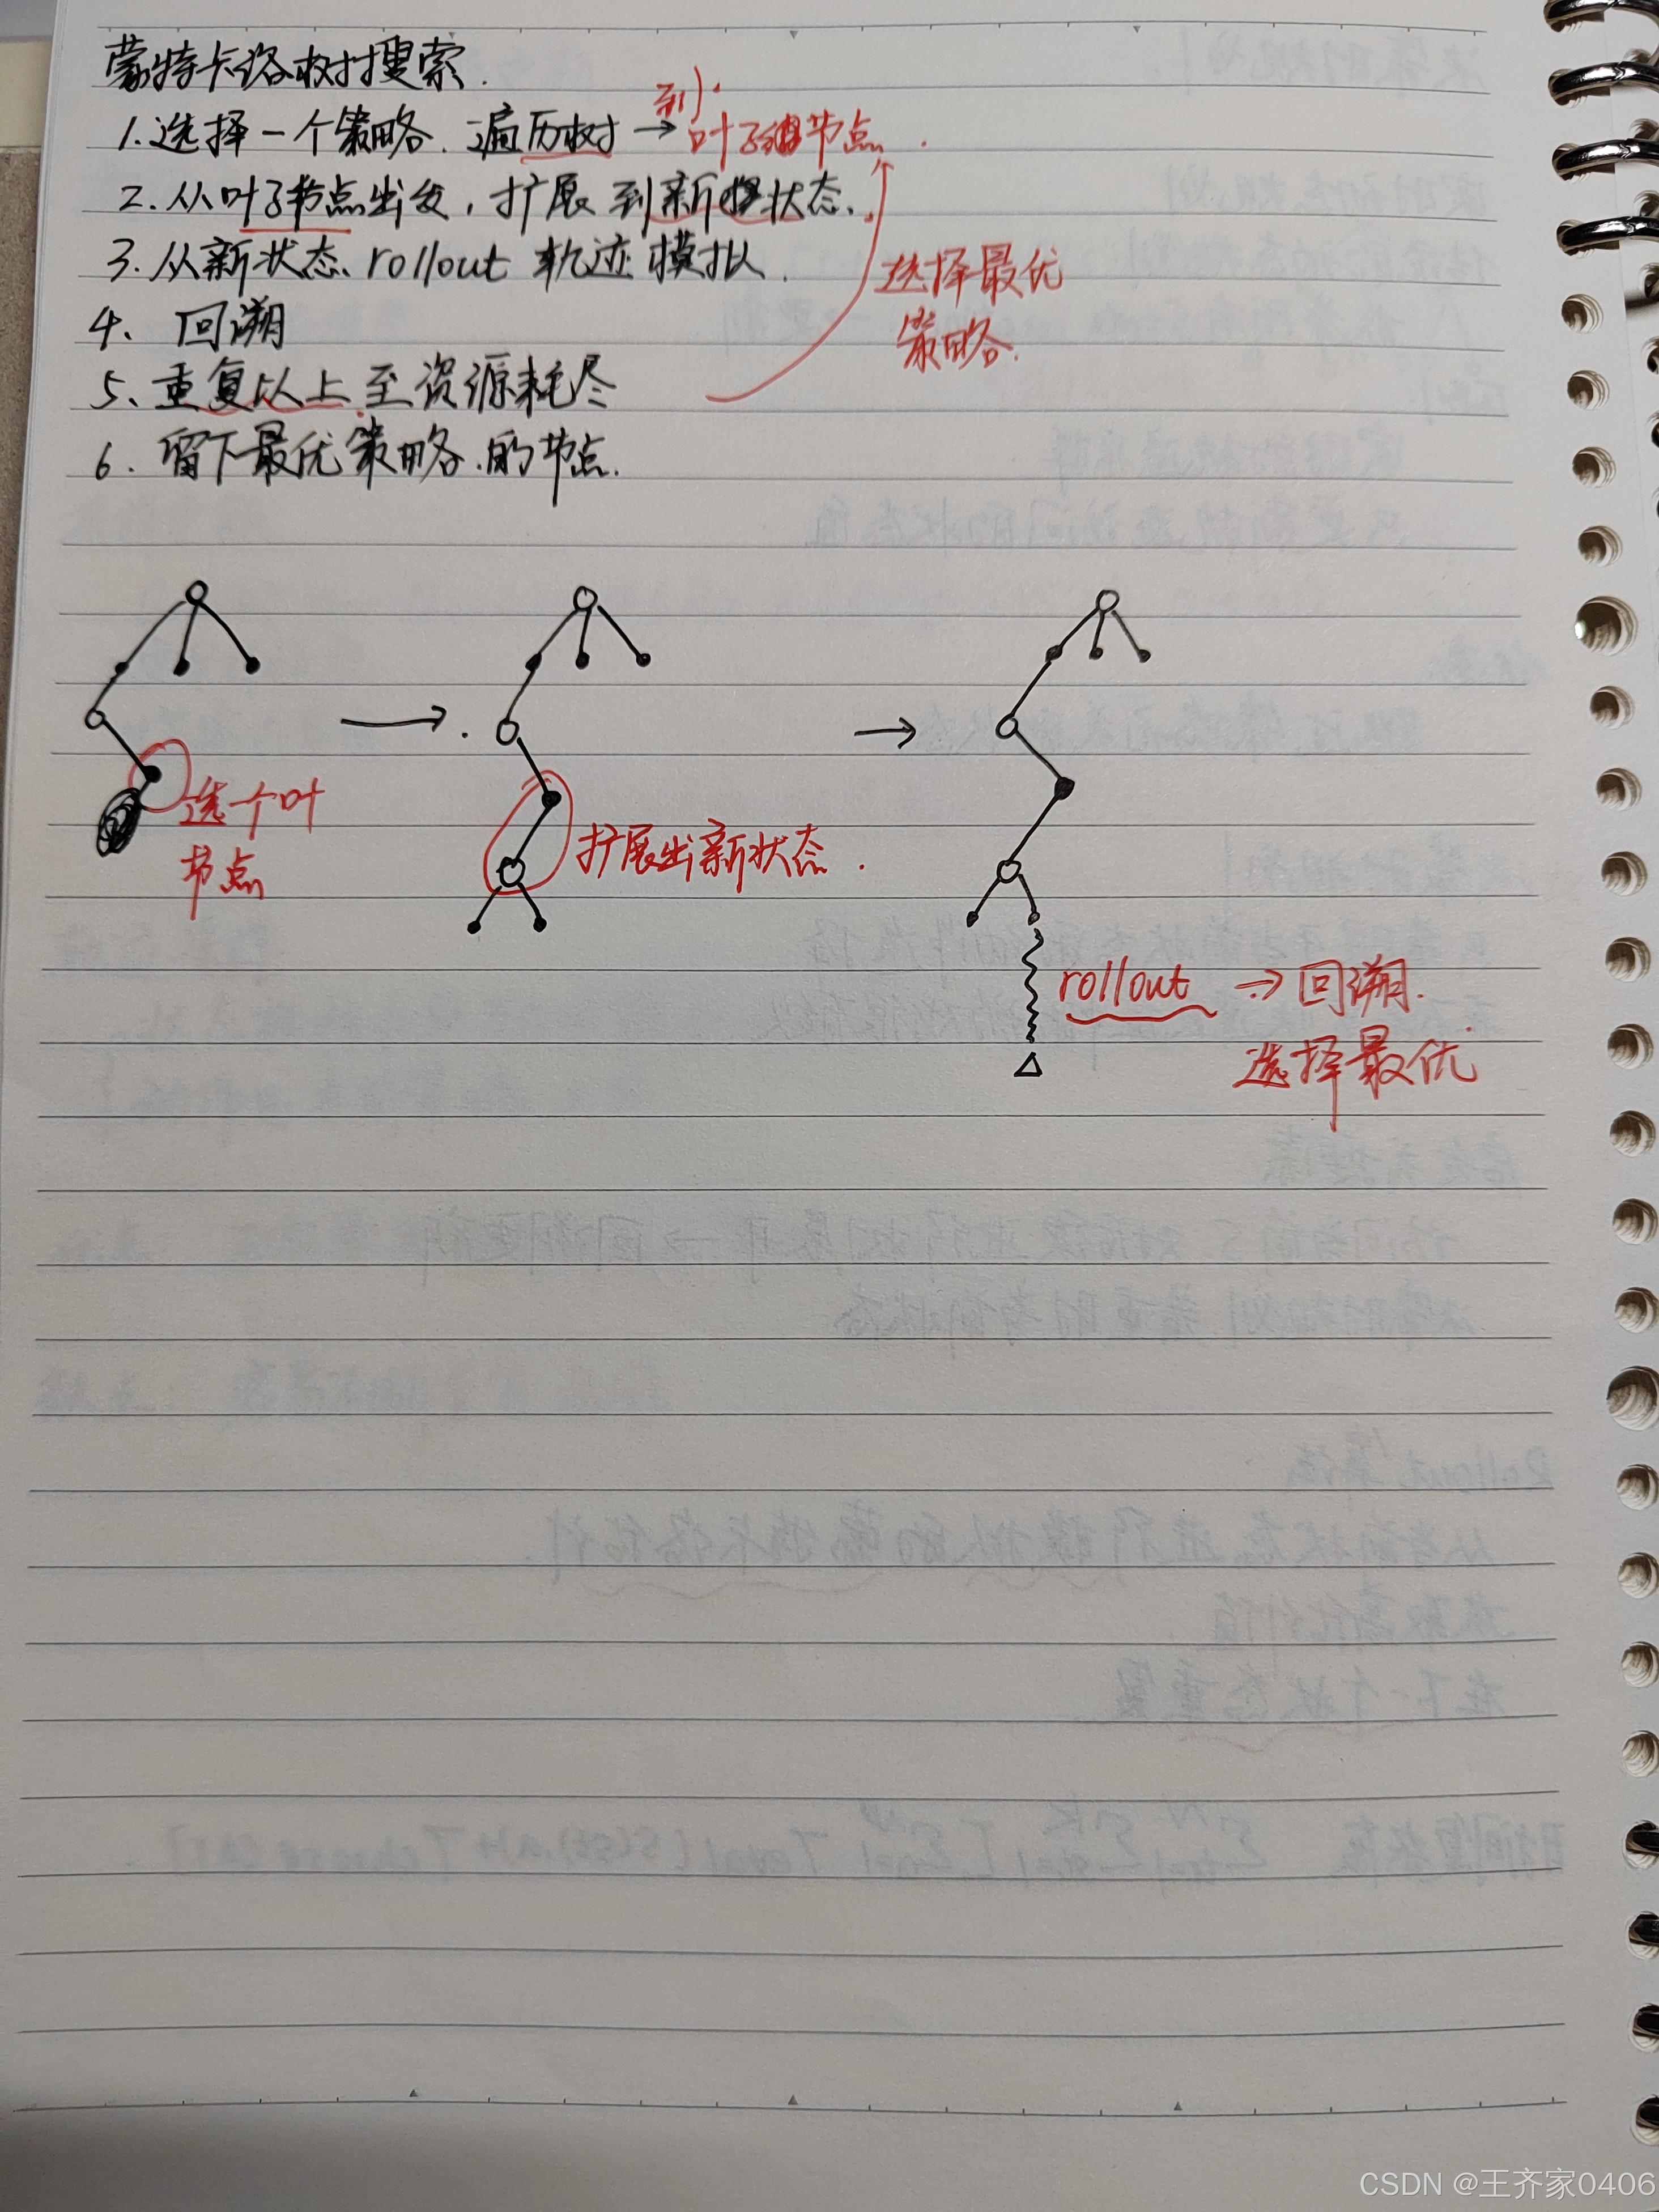 蒙特卡洛树搜索.
1.选择一个策略. 遍历树 → 到 叶子节点.
2.从叶子节点出发, 扩展到新状态.
3.从新状态 rollout 轨迹模拟.
选择最优
策略.
4、回溯
5、重复以上至资源耗尽
6.留下最优策略的节点.
选个叶
节点
扩展出新状态.
rollout → 回溯.
选择最优
CSDN @王齐家0406